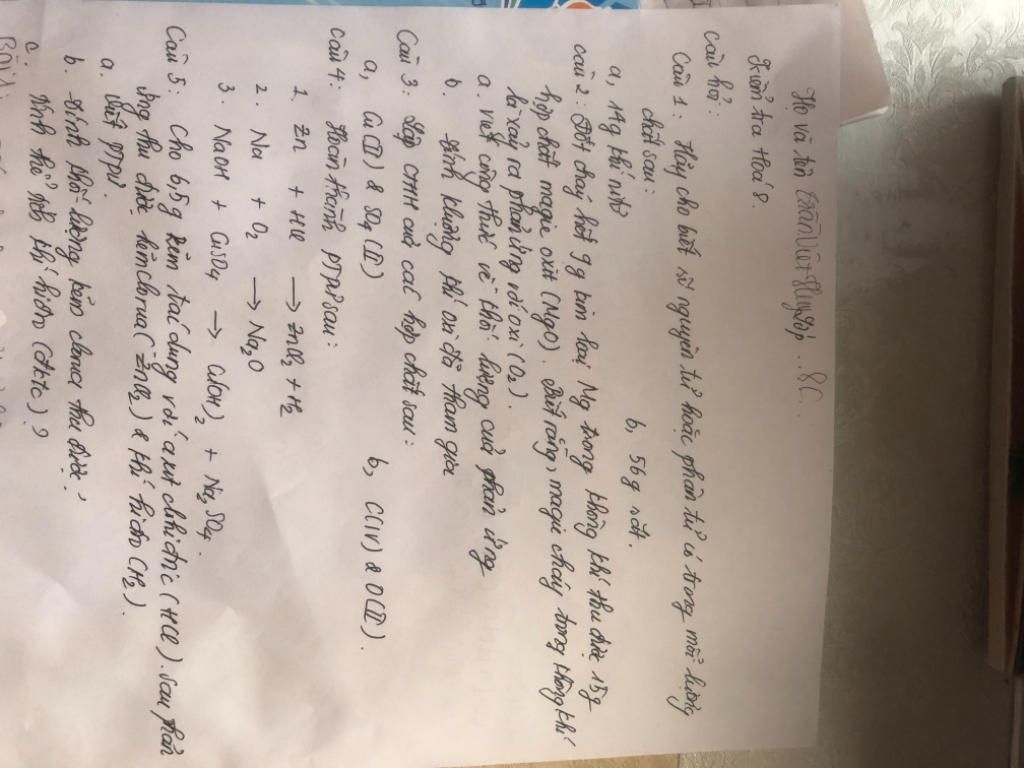 Họ và tên Trần Việt Huy lớp ..8C..
Kiểm tra Hoá 8.
Câu hỏi:
Câu 1: Hãy cho biết số nguyên tử hoặc phân tử có trong mỗi lượng
chất sau:
a, 14g khí nitơ b, 56g sắt.
Câu 2: Đốt cháy hết 9g kim loại Mg trong không khí thu được 15g
hợp chất magie oxit (MgO). Biết rằng, magie cháy trong không khí
là xảy ra phản ứng với oxi (O₂).
a. Viết công thức về khối lượng của phản ứng
b. Tính khối lượng khí oxi đã tham gia
Câu 3: Lập CTHH của các hợp chất sau:
a, Cu (II) & SO₄ (II) b, C(IV) & O(II).
Câu 4: Hoàn thành PTPƯ sau:
1. Zn + HCl → ZnCl₂ + H₂
2. Na + O₂ → Na₂O
3. NaOH + CuSO₄ → Cu(OH)₂ + Na₂SO₄.
Câu 5: Cho 6,5g kẽm tác dụng với axit clohiđric (HCl). sau phản
ứng thu được kẽm clorua (ZnCl₂) & khí hiđro (H₂).
a. Viết PTPƯ.
b. Tính khối lượng kẽm clorua thu được?
c. Tính thể tích khí hiđro (đktc)?
Bài 1: